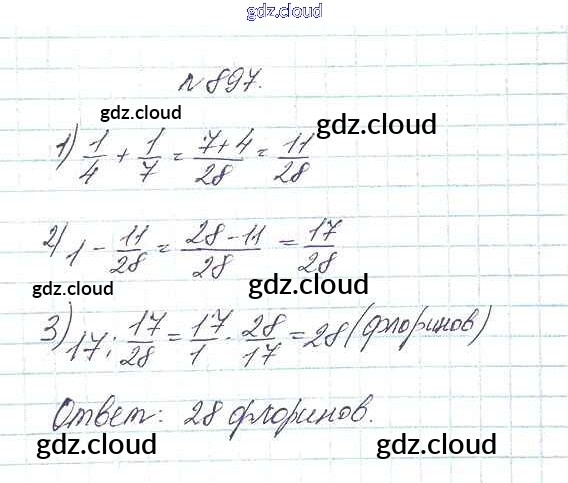 gdz.cloud
gdz.cloud
N 897.
gdz.cloud
gdz.cloud
1) 1/4 + 1/7 = (7+4)/28 = 11/28
2) 1 - 11/28 = (28-11)/28 = 17/28
gdz.cloud
gdz.cloud
3) 17 : 17/28 = 17/1 · 28/17 = 28 (флоринов)
Ответ: 28 флоринов.
gdz.cloud
gdz.cloud